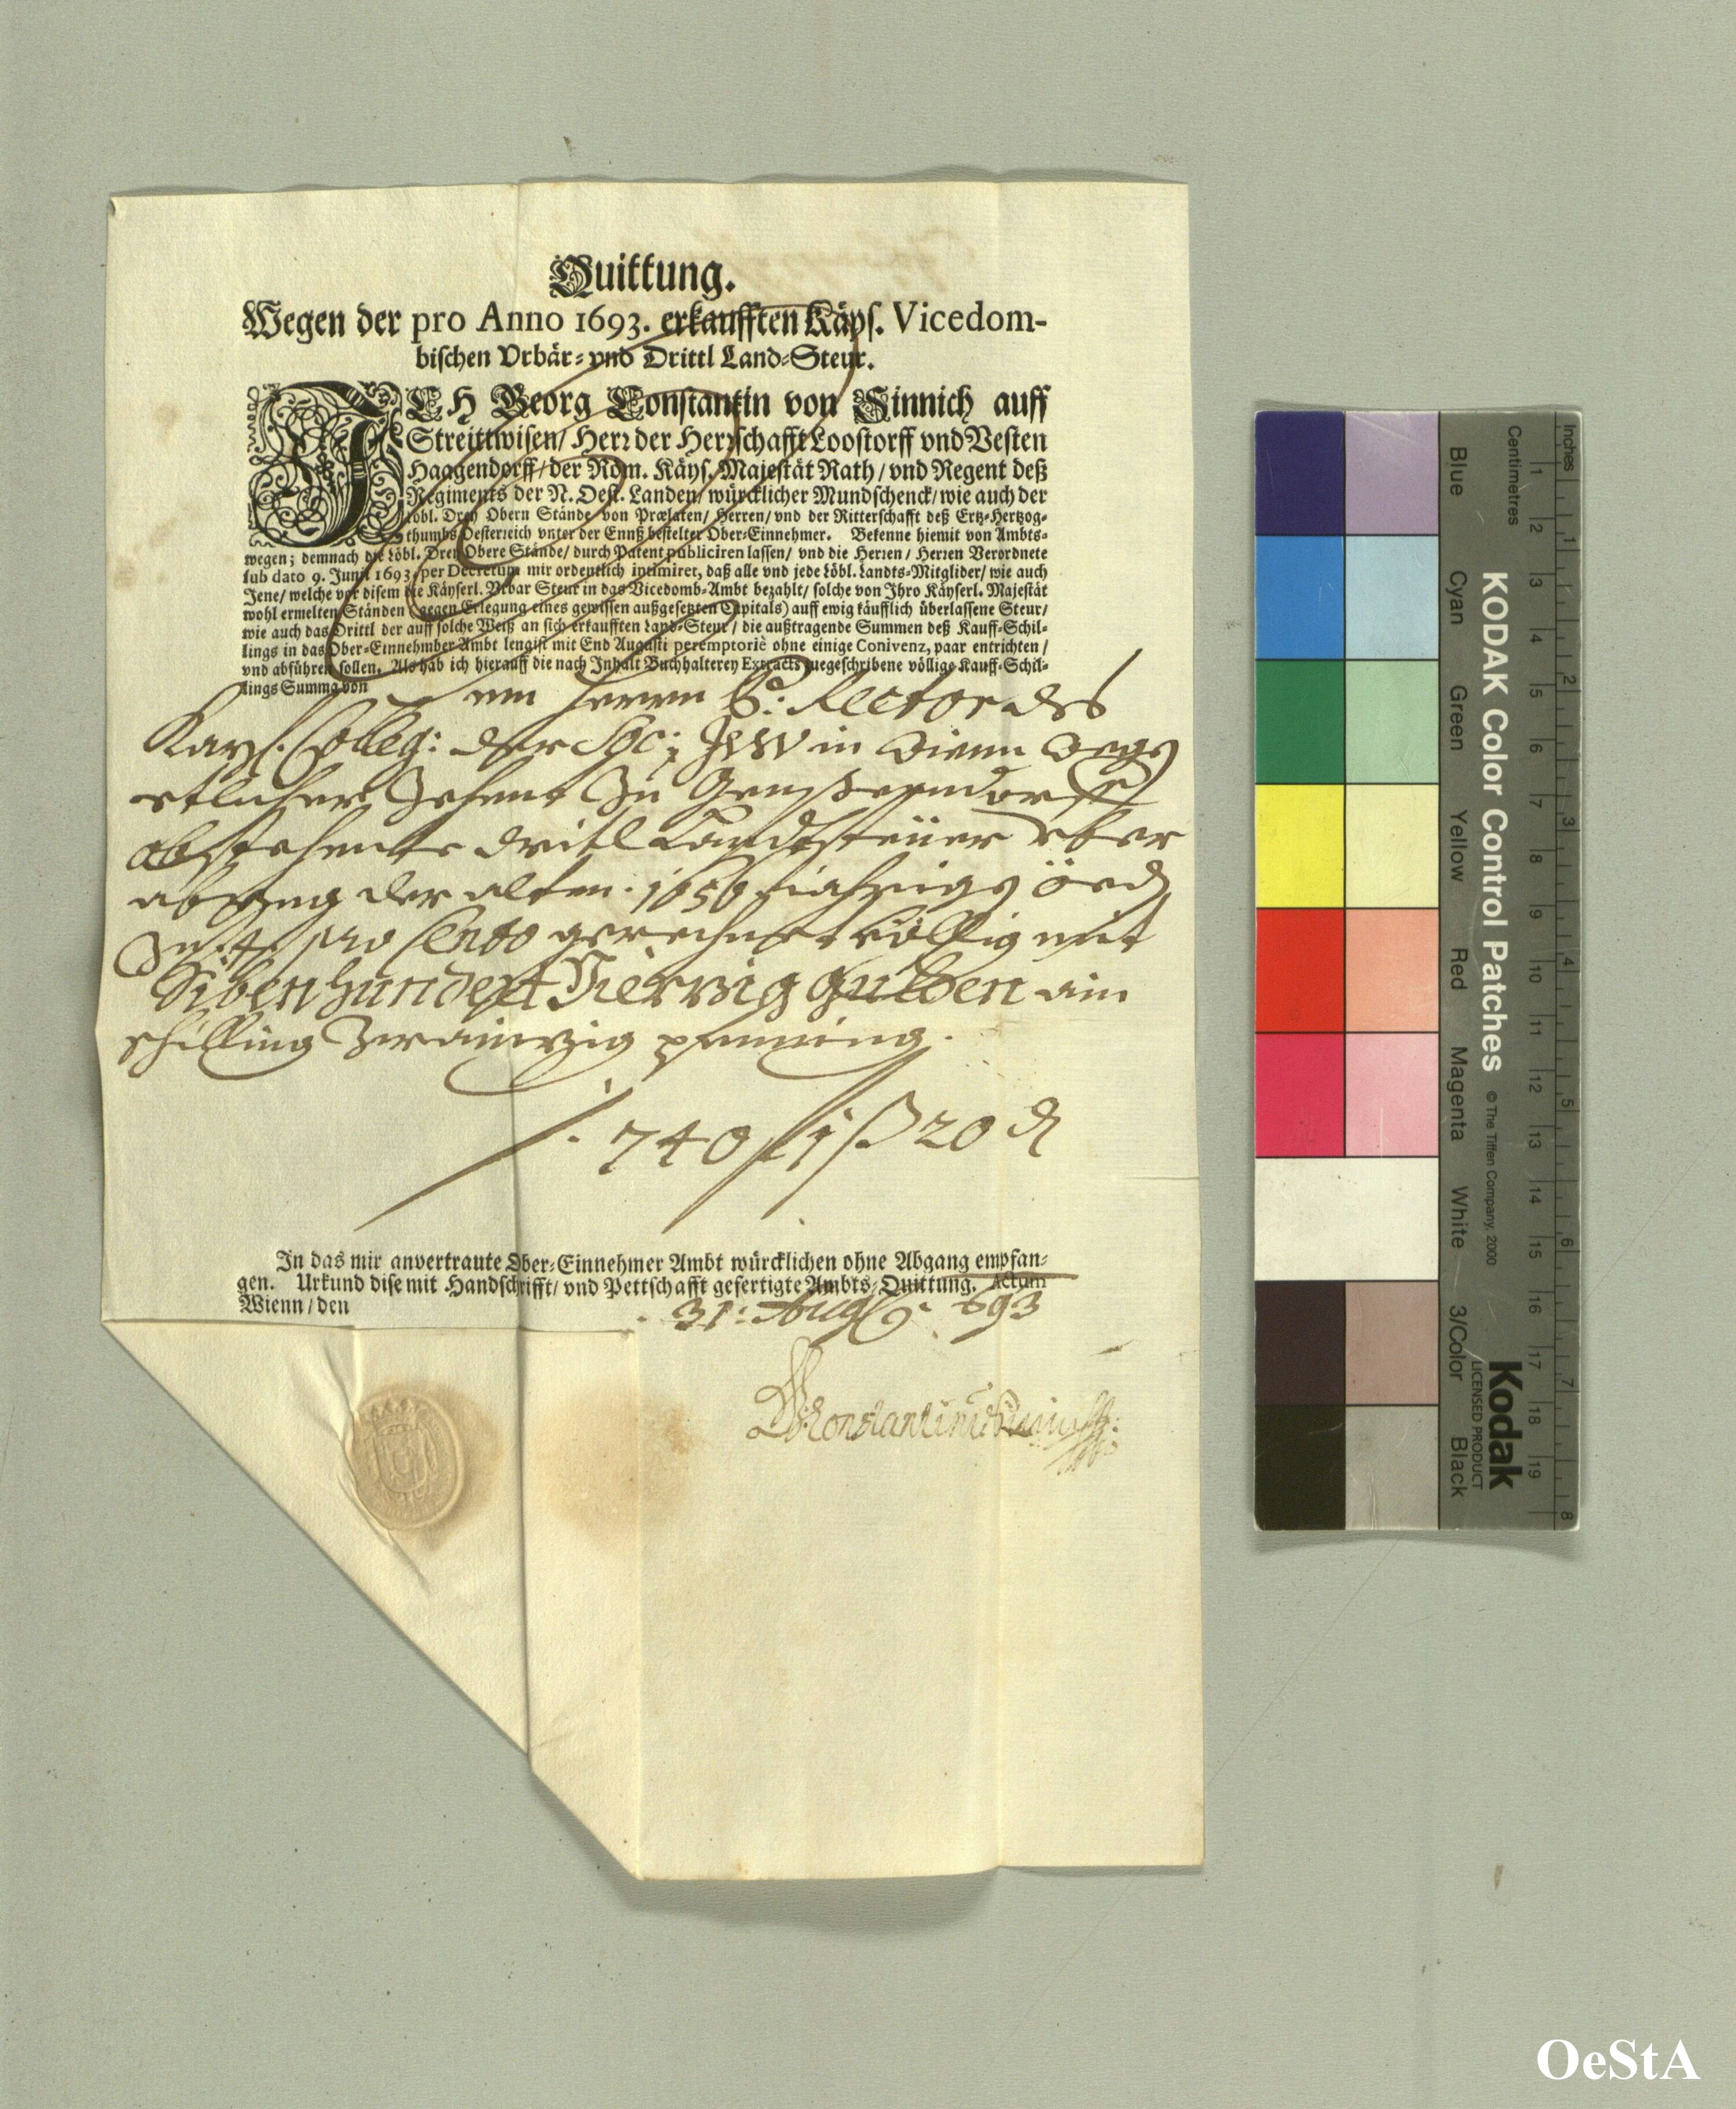 Quittung.
Wegen der pro Anno 1693. erkaufften Käys. Vicedom-
bischen Vrbär- vnd Drittl Land-Steur.
JCH Georg Constantin von Sinnich auff
Streittwisen/ Herr der Herrschafft Loostorff vnd Vesten
Haagendorff/ der Röm. Käys. Majestät Rath/ vnd Regent deß
Regiments der N. Oest. Landen/ würcklicher Mundschenck/ wie auch der
Löbl. Drey Obern Stände von Prælaten/ Herren/ vnd der Ritterschafft deß Ertz-Hertzog-
thumbs Oesterreich vnter der Ennß bestelter Ober-Einnehmer. Bekenne hiemit von Ambts-
wegen; demnach die Löbl. Drey Obere Stände/ durch Patent publiciren lassen/ vnd die Herren/ Herren Verordnete
sub dato 9. Junij 1693. per Decretum mir ordentlich intimiret, daß alle vnd jede Löbl. Landts-Mitglider/ wie auch
Jene/ welche vor disem die Käyserl. Vrbar Steur in das Vicedomb-Ambt bezahlt/ solche von Ihro Käyserl. Majestät
wohl ermelten Ständen (gegen Erlegung eines gewissen außgesetzten Capitals) auff ewig käufflich überlassene Steur/
wie auch das Drittl der auff solche Weiß an sich erkaufften Land-Steur/ die außtragende Summen deß Kauff-Schil-
lings in das Ober-Einnehmber Ambt lengist mit End Augusti peremptoriè ohne einige Conivenz, paar entrichten/
vnd abführen sollen. Als hab ich hierauff die nach Inhalt Buchhalterey Extracts zuegeschribene völlige Kauff-Schil-
lings Summa von
Herrn P: Rector des
Kayl. Colleg: der Soc: Jesu in Wienn wegen
etlicher Zehent zu Genßerndorff
abstehente dritl Landtsteüer yber
abzug der alten 1656 jahrigen öed
zu 4 pro Cento gerechnet völlig mit
Siben hundert Vierzig gulden ain
schilling zwainzig pfenning.
740 fl 1 ß 20 d
In das mir anvertraute Ober-Einnehmer Ambt würcklichen ohne Abgang empfan-
gen. Urkund dise mit Handschrifft/ vnd Pettschafft gefertigte Ambts-Quittung. Actum
Wienn/ den
31: Aug: 693
Constantin
KODAK Color Control Patches © The Tiffen Company, 2000
Kodak
LICENSED PRODUCT
Blue Cyan Green Yellow Red Magenta White 3/Color Black
Inches 1 2 3 4 5 6 7 8
Centimetres 1 2 3 4 5 6 7 8 9 10 11 12 13 14 15 16 17 18 19
OeStA